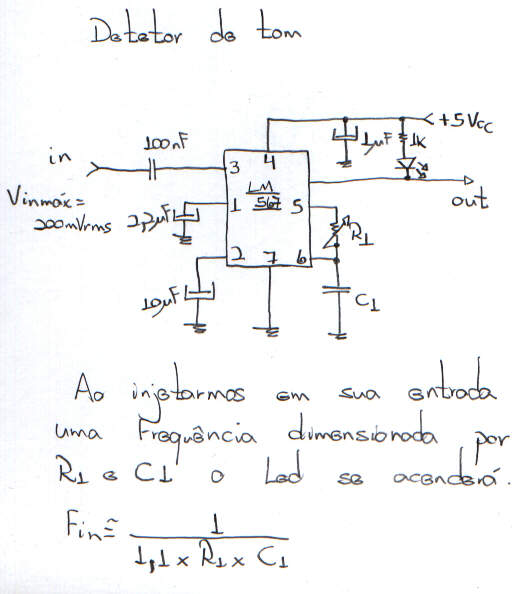 Detetor de tom
+5Vcc
100nF
1µF
1K
in
3
4
LM
567
out
Vinmáx=
200mVrms
2,2µF
1
5
R1
2
7
6
10µF
C1
Ao injetarmos em sua entrada
uma Frequência dimensionada por
R1 e C1 o Led se acenderá.
Fin≅ 1
1,1 x R1 x C1